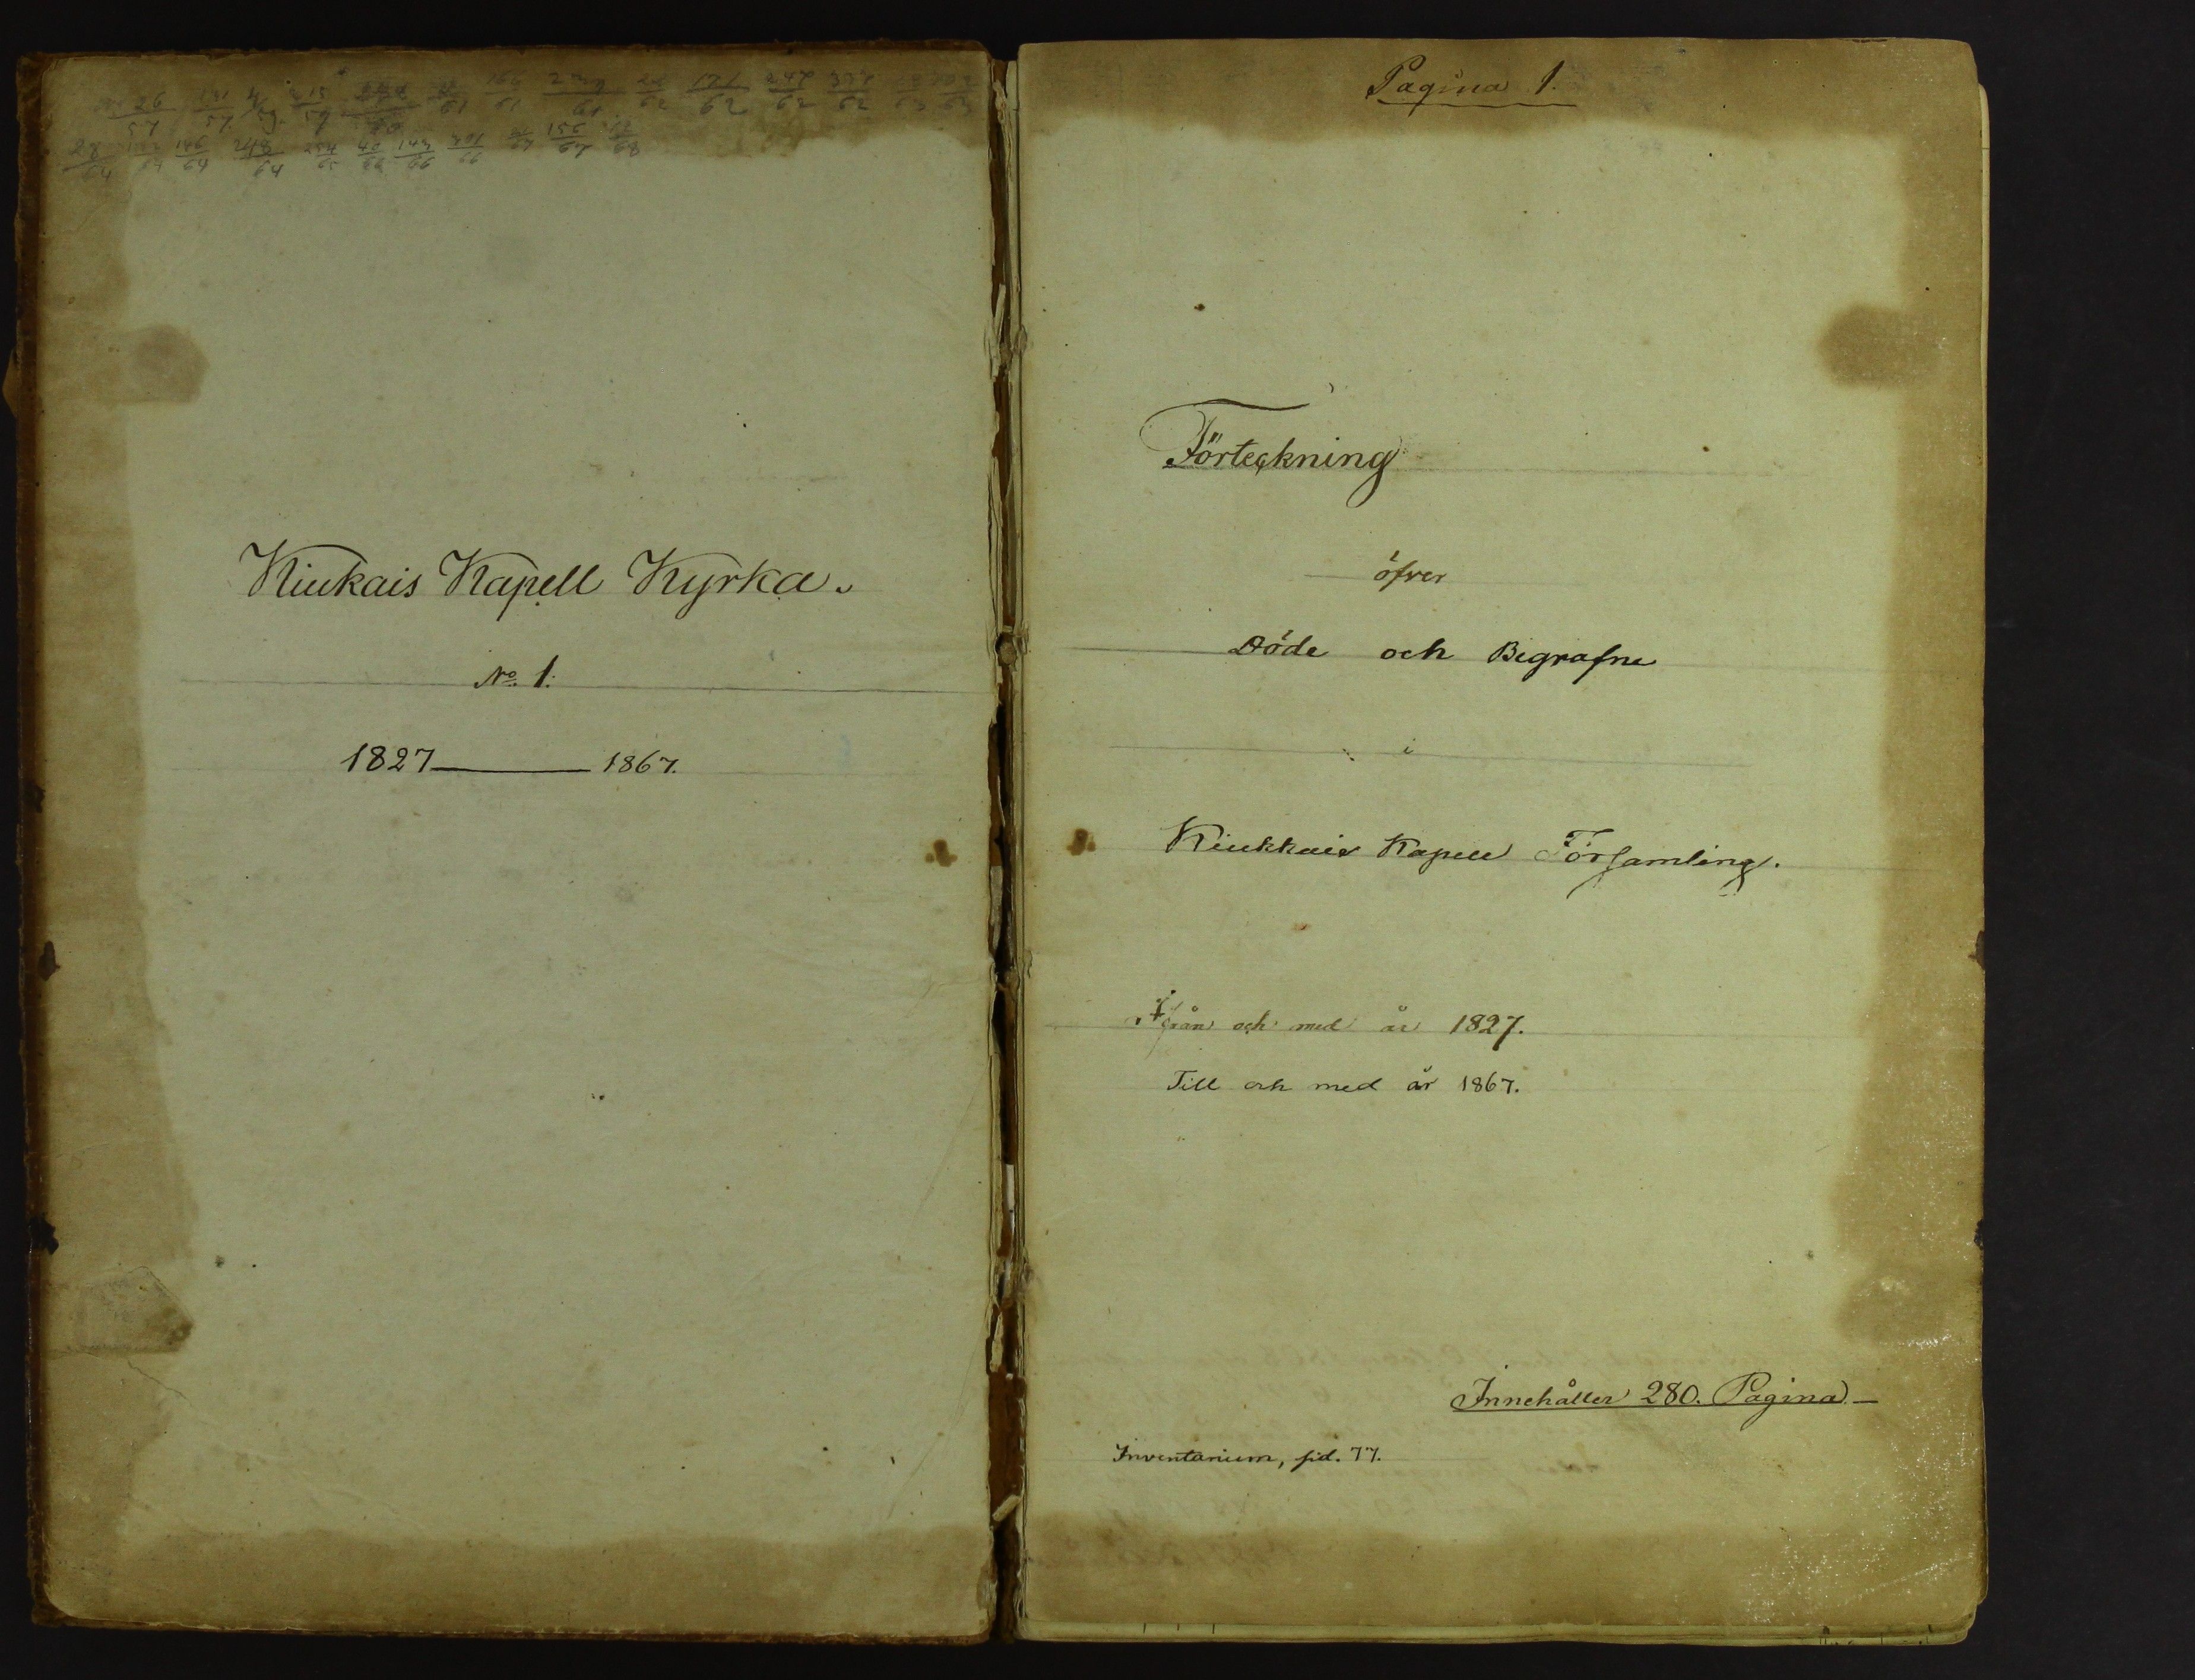 Kiukais Kapell Kyrka.
No. 1.
1827 — 1867.
Pagina 1.
Förteckning
öfver
Döde och Begrafne
i
Kiukkais Kapell Församling.
från och med år 1827.
Till och med år 1867.
Innehåller 280. Pagina —
Inventarium, sid. 77.